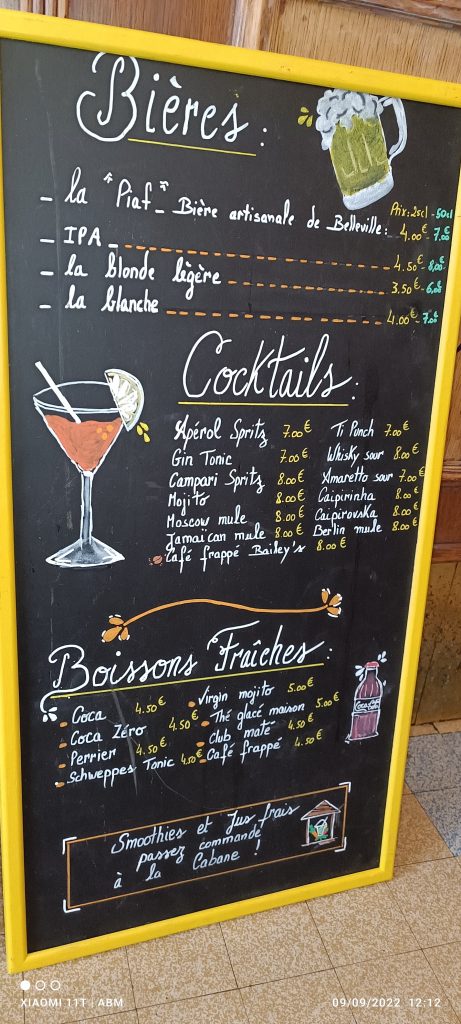 Bières :
Prix: 25cl - 50cl
- la "Piaf" - Bière artisanale de Belleville: 4.00€ - 7.00€
- IPA - 4.50€ - 8.00€
- la blonde légère 3.50€ - 6.00€
- la blanche 4.00€ - 7.00€
Cocktails :
Apérol Spritz 7.00€ Ti Punch 7.00€
Gin Tonic 7.00€ Whisky sour 8.00€
Campari Spritz 8.00€ Amaretto sour 7.00€
Mojito 8.00€ Caïpirinha 8.00€
Moscow mule 8.00€ Caïpirovska 8.00€
Jamaïcan mule 8.00€ Berlin mule 8.00€
Café frappé Bailey's 8.00€
Boissons Fraîches :
Coca 4.50€ Virgin mojito 5.00€
Coca Zéro 4.50€ Thé glacé maison 5.00€
Perrier 4.50€ Club maté 4.50€
Schweppes Tonic 4.50€ Café frappé 4.50€
Smoothies et Jus frais
passez commande
à la Cabane !
XIAOMI 11T | ABM 09/09/2022 12:12